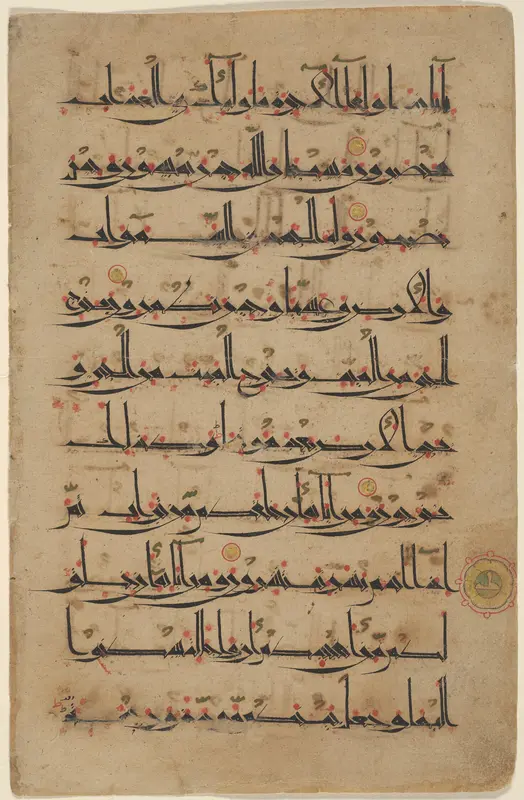 بآياتنا ولقاء الآخرة فأولئك في العذاب
محضرون فسبحان الله حين تمسون وحين
تصبحون وله الحمد في السموات
والأرض وعشيا وحين تظهرون يخرج
الحي من الميت ويخرج الميت من الحي و
يحيي الأرض بعد موتها وكذلك
تخرجون ومن آياته أن خلقكم من تراب ثم
إذا أنتم بشر تنتشرون ومن آياته أن خلق
لكم من أنفسكم أزواجا لتسكنوا
إليها وجعل بينكم مودة ورحمة